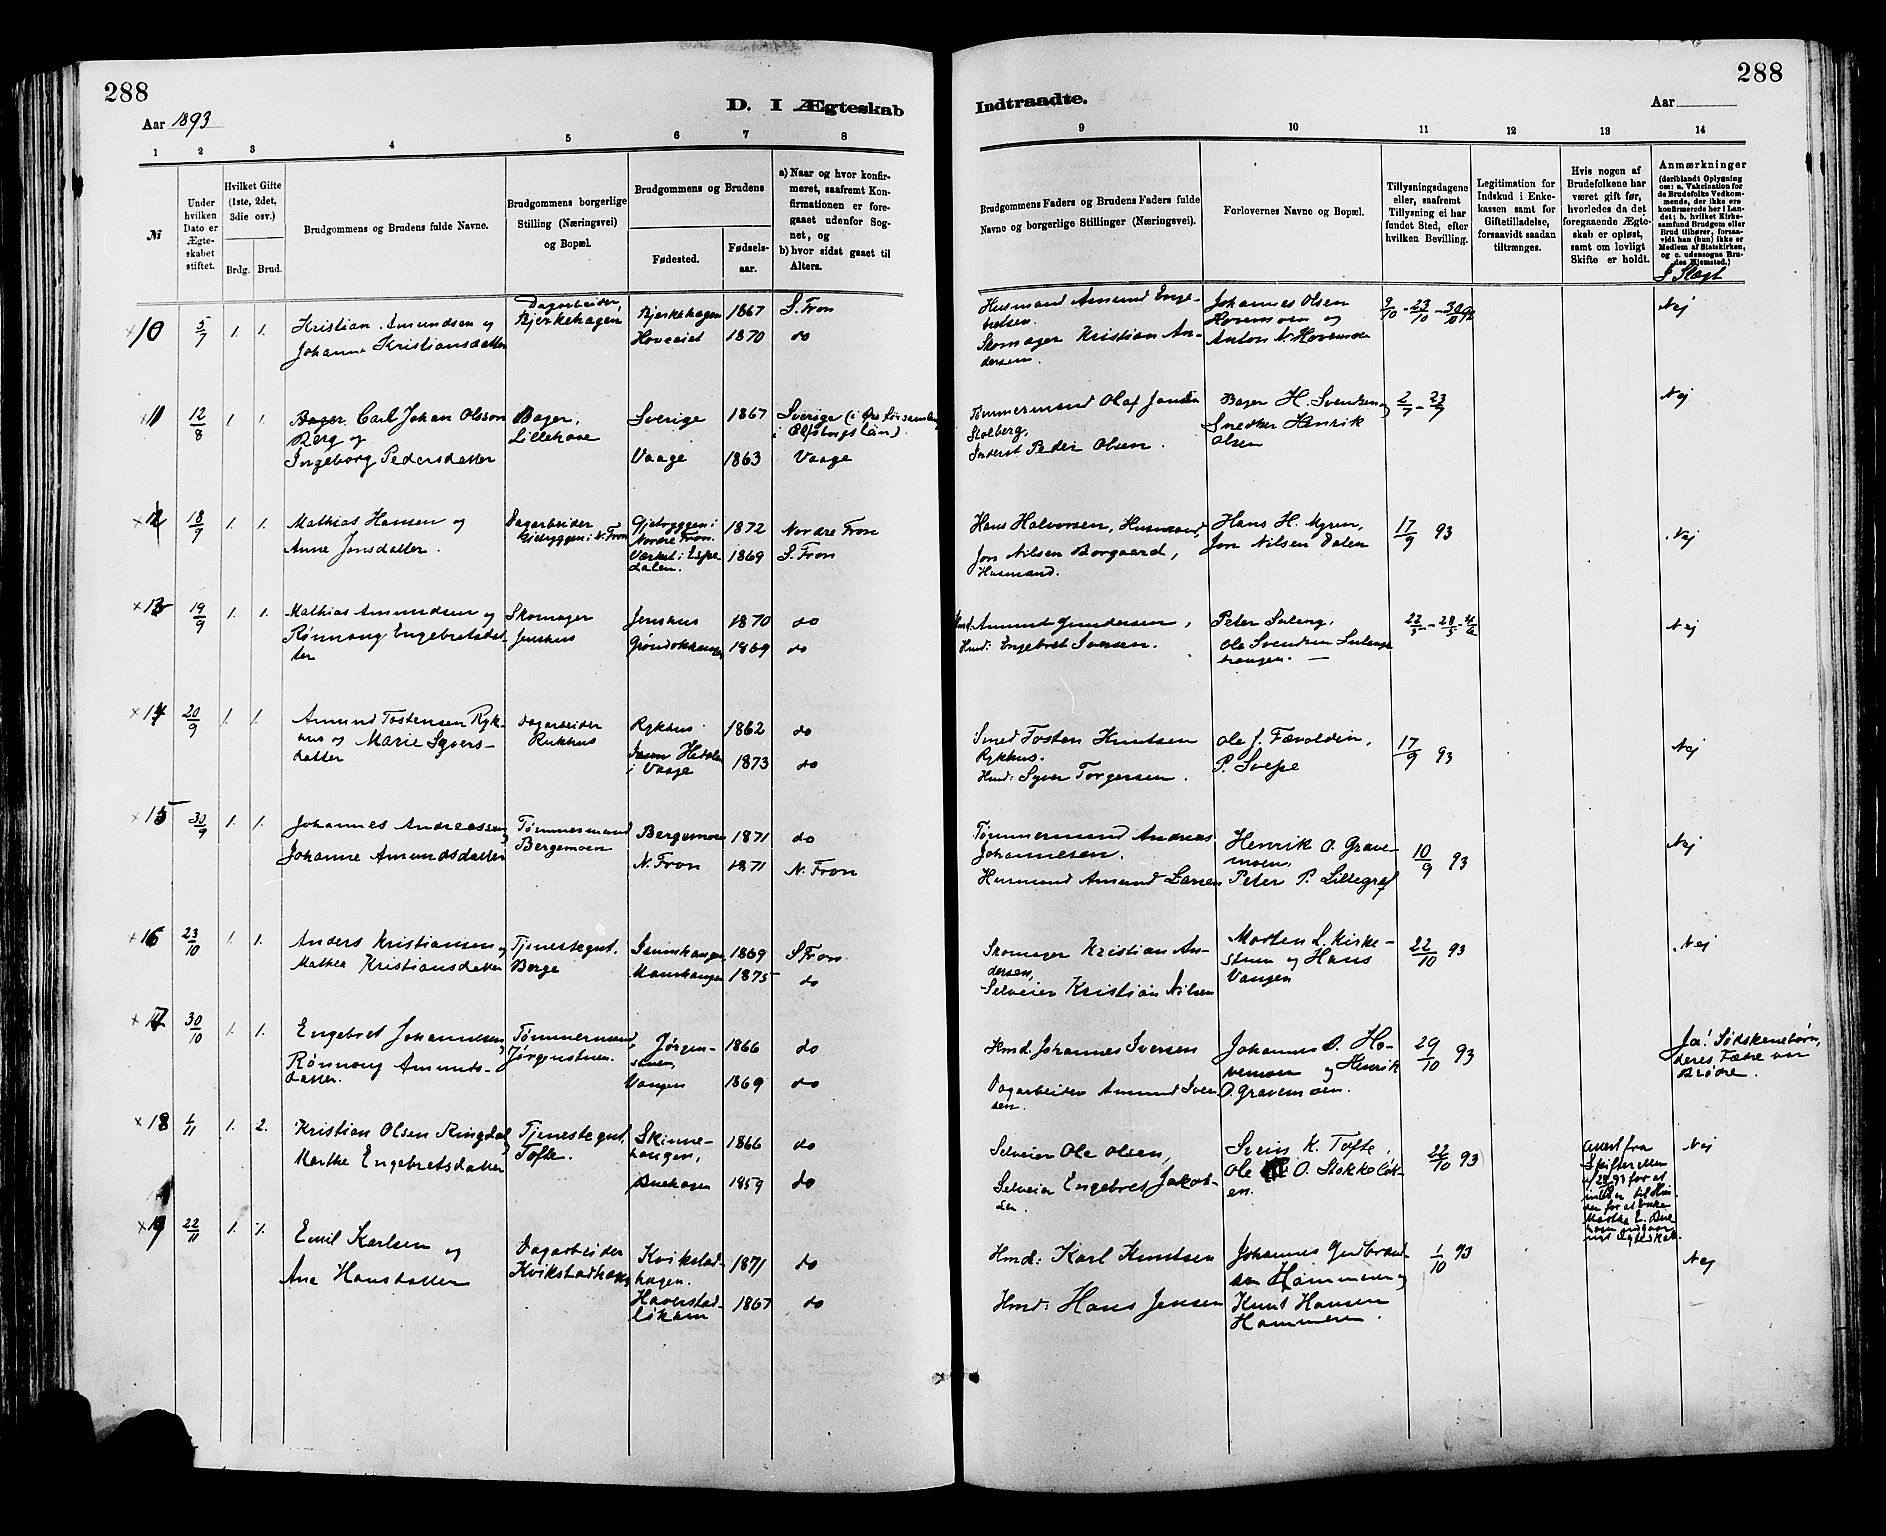 288
Aar 1893
D. I Ægteskab
1 2 3 4 5 6 7 8
№
Under hvilken Dato er Ægteskabet stiftet.
Hvilket Gifte (1ste, 2det, 3die osv.)
Brdg. Brud.
Brudgommens og Brudens fulde Navne.
Brudgommens borgerlige Stilling (Næringsvei) og Bopæl.
Brudgommens og Brudens
Fødested.
Fødsels-aar.
a) Naar og hvor konfir-
meret, saafremt Kon-
firmationen er fore-
gaaet udenfor Sog-
net, og
b) hvor sidst gaaet til
Alters.
10 5/7 1. 1. Kristian Amundsen og
Johanne Kristiansdatter
Dagarbeider,
Bjerkehagen
Bjerkehagen 1867 S. Fron
Hoveeiet 1870 do
11 12/8 1 1. Bager Carl Johan Olsson
Berg og
Ingeborg Pedersdatter
Bager,
Lillehove
Sverige 1867 Sverige
Vaage 1863 Vaage
12 18/9 1. 1. Mathias Hansen og
Anne Jonsdatter.
Dagarbeider
i N. Fron
i
Nordre Fron. 1872 Nordre Fron
1869 S. Fron
dalen.
13 19/9 1. 1. Mathias Amundsen og
Rønnoug Engebretsdat-
ter
Skomager
Jenshus
Jenshus 1870 do
1869 do
14 20/9 1. 1. Amund Tostensen Ryk-
hus og Marie Syvers-
datter
Dagarbeider
Rykhus
Rykhus 1862 do
i Vaage 1873 do
15 30/9 1. 1. Johannes Andreassen
Johanne Amundsdatter
Tømmermand
Bergemoen
Bergemoen 1871 do
N. Fron 1871 N. Fron
16 23/10 1. 1. Anders Kristiansen og
Mathea Kristiansdatter
Tjenestegut.
Berge
1869 S. Fron
1875 do
17 30/10 1. 1. Engebret Johannesen
Rønnoug Amunds-
datter.
Tømmermand,
Jørgenstuen.
Jørgen-
stuen, 1866 do
Vangen 1869 do
18 1/11 1. 2. Kristian Olsen Ringdal
Marthe Engebretsdatter
Tjenestegut
Tofte.
Skinne-
haugen, 1866 do
Buehagen 1859 do
19 22/11 1. 1. Emil Karlsen og
Ane Hansdatter
Dagarbeider
Kvikstadhagen
Kvikstad-
hagen. 1871 do
Haverstad-
løkken 1867 do
288
Indtraadte.
Aar
9 10 11 12 13 14
Brudgommens Faders og Brudens Faders fulde
Navne og borgerlige Stillinger (Næringsvei).
Forlovernes Navne og Bopæl.
Tillysningsdagene
eller, saafremt
Tillysning ei har
fundet Sted, efter
hvilken Bevilling.
Legitimation for
Indskud i Enke-
kassen samt for
Giftetilladelse,
forsaavidt saadan
tiltrænges.
Hvis nogen af
Brudefolkene har
været gift før,
hvorledes da det
foregaaende Ægte-
skab er opløst,
samt om lovligt
Skifte er holdt.
Anmærkninger
(deriblandt Oplysning
om: a. Vakcination for
de Brudefolks Vedkom-
mende, der ikke ere
konfirmerede her i Lan-
det; b. hvilket Kirke-
samfund Brudgom eller
Brud tilhører, forsaa-
vidt han (hun) ikke er
Medlem af Statskirken,
og c. udensogns Bru-
des Hjemsted.)
I Slægt
Husmand Amund Enge-
bretsen.
Skomager Kristian An-
dersen.
Johannes Olsen
Hovemoen og
Anton N. Hovemoen
9/10 - 23/10 - 30/10 92
Nej
Tømmermand Olaf
Inderst Peder Olsen.
Bager H. Svendsen og
Snedker Henrik
Olsen
2/7 - 23/7
Nej
Hans Halvorsen, Husmand,
Jon Nilsen Borgaard,
Husmand.
Hans H. Myren,
Jon Nilsen Dalen
17/9 93
Nej
Hmd. Amund Gundersen,
Hmd: Engebret Iversen.
Peter Suleng,
Ole Svendsen
Nej
Smed Tosten Knutsen
Rykhus.
Hmd: Syver Torgersen.
Ole J. Fævolden,
P. Svepe
17/9 93
Nej
Tømmermand Andreas
Johannesen.
Husmand Amund Larsen
Henrik O. Grave-
moen,
Peter P. Lillegraf
10/9 93
Nej
Skomager Kristian An-
dersen,
Selveier Kristian Nilsen
Morten L. Kirke-
stuen og Hans
Vangen
22/10 93
Nej
Hmd. Johannes Iversen
Dagarbeider Amund Iver-
sen.
Johannes O. Ho-
vemoen og Henrik
O. Gravemoen.
29/10 93
Ja! Sødskenebørn,
deres Fædre var
Brødre.
Selveier Ole Olsen,
Selveier Engebret Jakob-
sen.
Svein K. Tofte,
Ole O. Stokkeløk-
en.
22/10 93
Attest fra
Skifteretten
Nej
Hmd: Karl Knutsen
Hmd: Hans Jensen
Johannes Gudbrand-
sen Hammeren og
Knut Hansen
Hammeren.
1/10 93
Nej